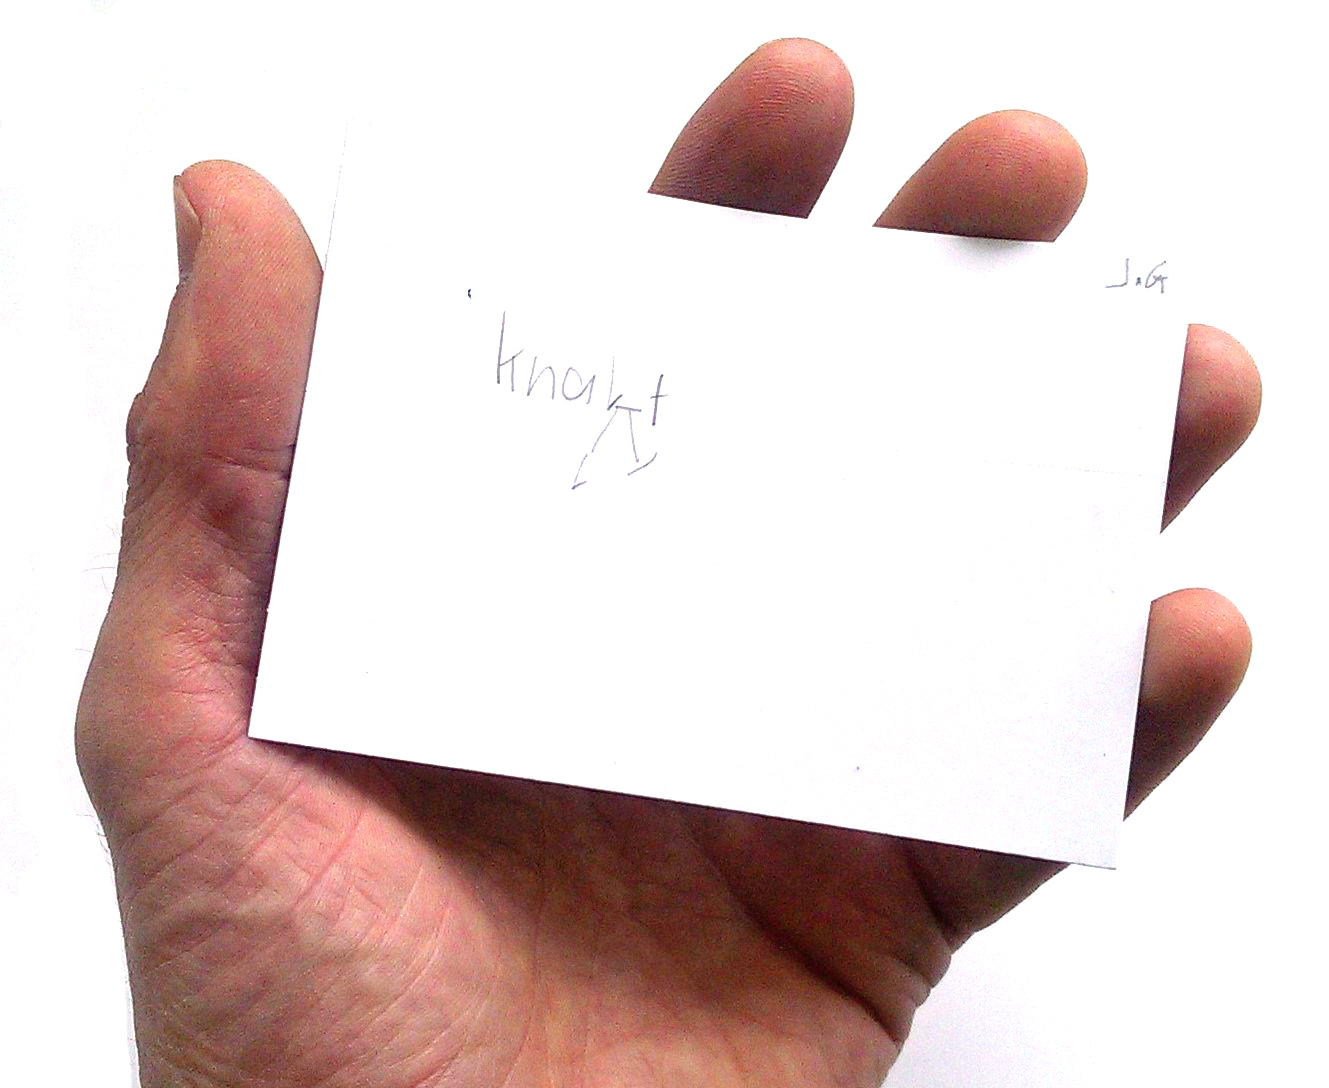 J.G
knakt